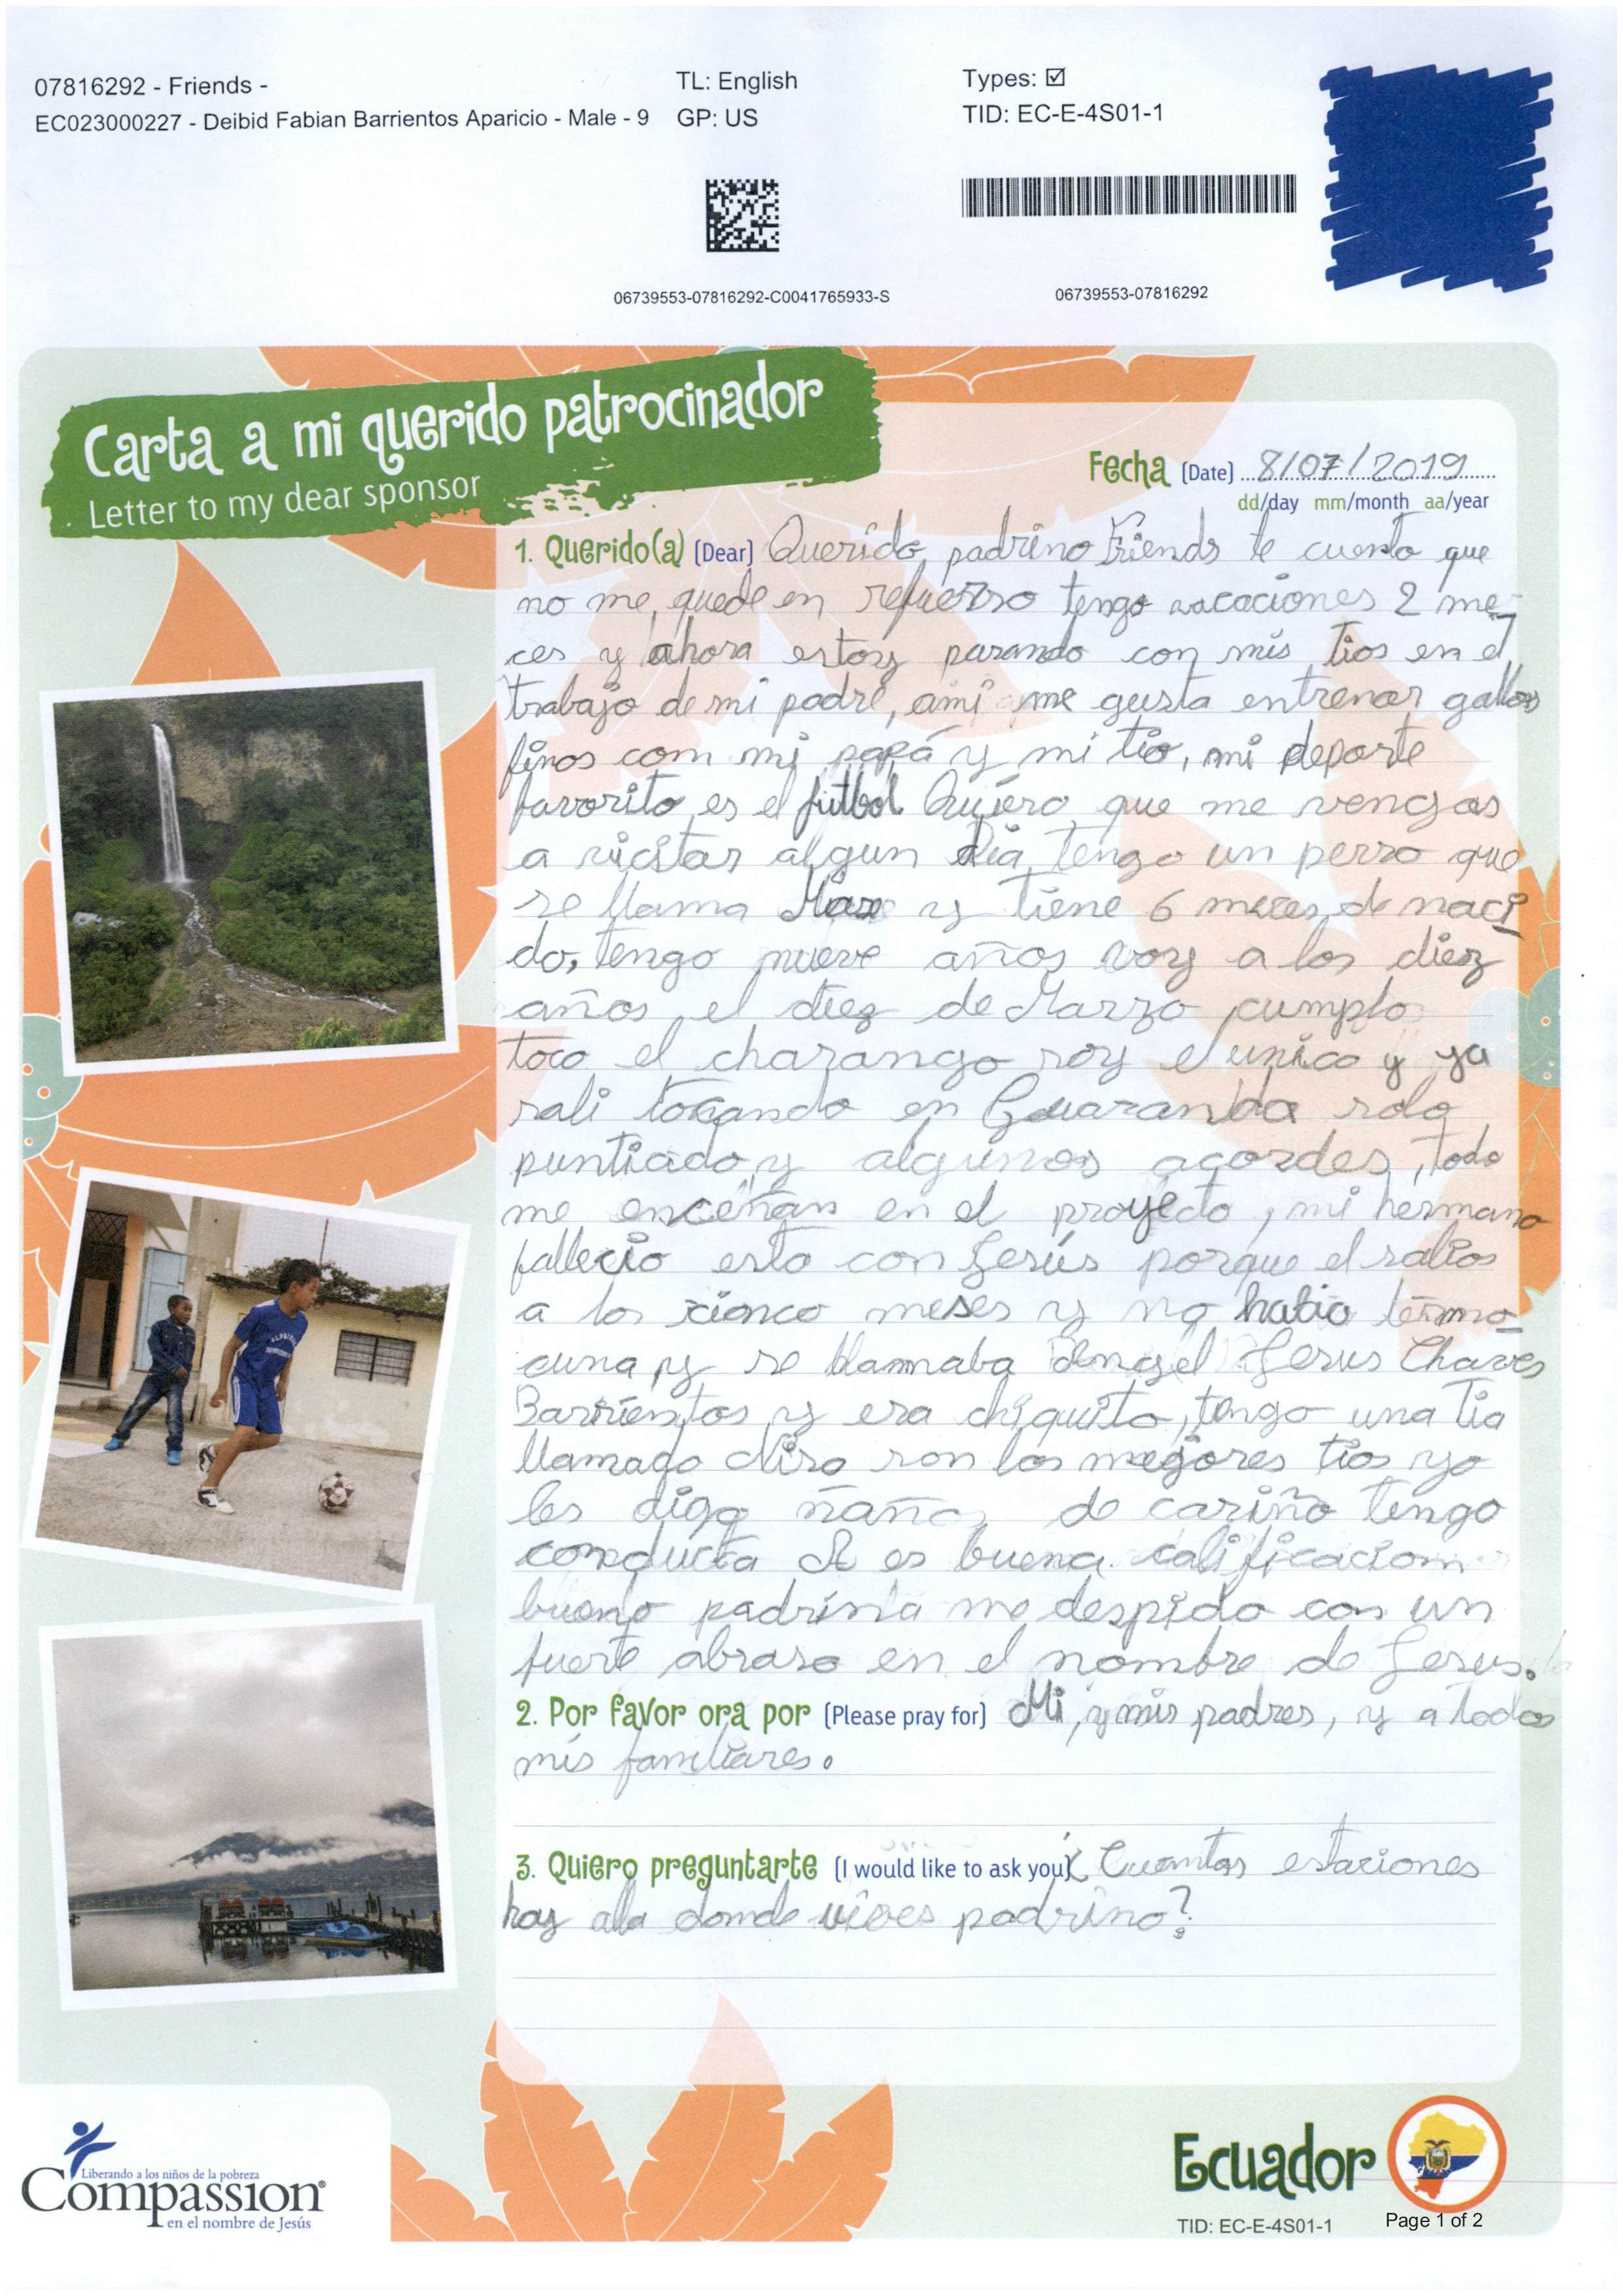 07816292 - Friends -
EC023000227 - Deibid Fabian Barrientos Aparicio - Male - 9
TL: English
GP: US
Types: ☑
TID: EC-E-4S01-1
06739553-07816292-C0041765933-S
06739553-07816292
Carta a mi querido patrocinador
Letter to my dear sponsor
Fecha (Date) 8/07/2019
dd/day mm/month aa/year
1. Querido(a) (Dear) Querido padrino Friends te cuento que
no me quede en refuerzo tengo vacaciones 2 me-
ces y ahora estoy pasando con mis tios en el
trabajo de mi padre, ami me gusta entrenar gallos
finos com mi papá y mi tio, mi deporte
favorito es el futbol Quiero que me vengas
a vicitar algun dia tengo un perro que
se llama Max y tiene 6 meces de naci
do, tengo nueve años voy a los diez
años el diez de Marzo cumplo
toco el charango soy el unico y ya
sali tocando en Guaranda solo
puntiado y algunos acordes, todo
me enceñan en el proyecto, mi hermano
fallecio esta con Jesús porque el salios
a los cionco meses y no habia termo
cuna y se llamnaba Jesus Chaves
Barrientos y era chiquito, tengo una tia
llamada son los megores tios yo
les digo ñaños de cariño tengo
conducta A es buena calificacion
bueno padrinla me despido con un
fuerte abraso en el nombre de Jesus.
2. Por favor ora por (Please pray for) Mi, y mis padres, y a todos
mis familiares.
3. Quiero preguntarte (I would like to ask you) ¿Cuamtas estaciones
hay alla domde vives padrino?
Liberando a los niños de la pobreza
Compassion®
en el nombre de Jesús
Ecuador
TID: EC-E-4S01-1
Page 1 of 2